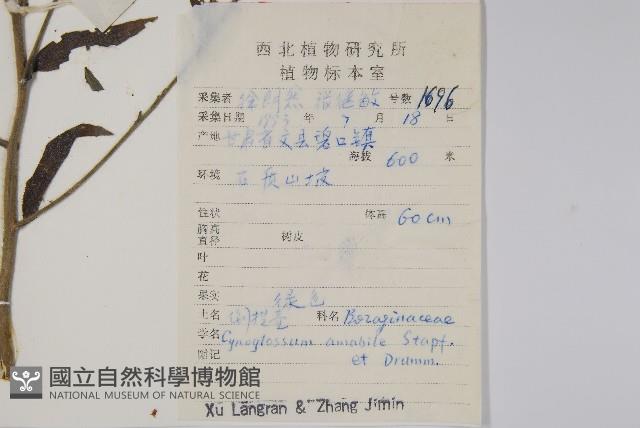 西北植物研究所
植物标本室
采集者 徐朗然 张继敏 号数 1696
采集日期 1993 年 7 月 18 日
产地 甘肃省文县碧口镇
海拔 600 米
环境 石质山坡
性状 体高 60cm
胸高
直径 树皮
叶
花
果实 绿色
土名 倒提壶 科名 Boraginaceae
学名 Cynoglossum amabile Stapf.
附记 et Drumm.
國立自然科學博物館
NATIONAL MUSEUM OF NATURAL SCIENCE
Xu Langran & Zhang Jimin